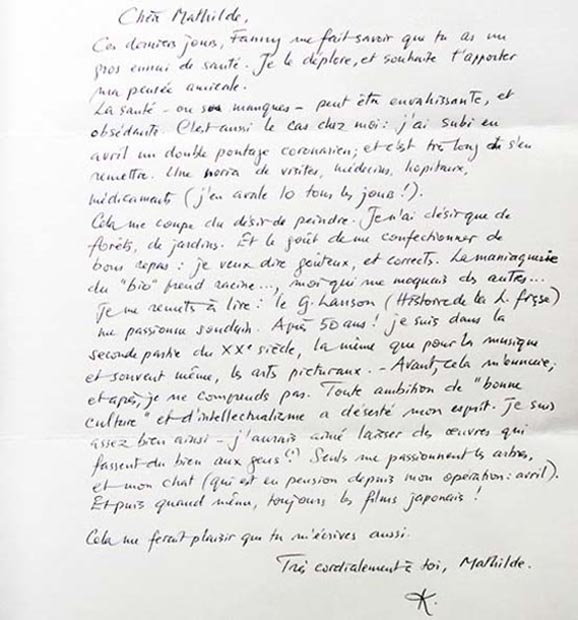 Chère Mathilde,
Ces derniers jours, Fanny me fait savoir que tu as un
gros ennui de santé. Je le déplore, et souhaite t'apporter
ma pensée amicale.
La santé - ou son manque - peut être envahissante, et
obsédante. C'est aussi le cas chez moi : j'ai subi en
avril un double pontage coronarien ; et c'est très long de s'en
remettre. Une noria de visites, médecins, hôpitaux,
médicaments (j'en avale 10 tous les jours !).
Cela me coupe du désir de peindre. Je n'ai désir que de
forêts, de jardins. Et le goût de me confectionner de
bons repas : je veux dire goûteux, et corrects. La maniaquerie
du "bio" prend racine..., moi qui me moquais des autres...
Je me remets à lire : le G. Lanson (Histoire de la L. frçse)
me passionne soudain. Après 50 ans ! je suis dans la
seconde partie du XXe siècle, la même que pour la musique
et souvent même, les arts picturaux. - Avant, cela m'ennuie,
et après, je ne comprends pas. Toute ambition de "bonne
culture" et d'intellectualisme a déserté mon esprit. Je suis
assez bien ainsi - j'aurais aimé laisser des œuvres qui
fassent du bien aux gens (?) Seuls me passionnent les arbres,
et mon chat (qui est en pension depuis mon opération : avril).
Et puis quand même, toujours les films japonais !
Cela me ferait plaisir que tu m'écrives aussi.
Très cordialement à toi, Mathilde.
K.